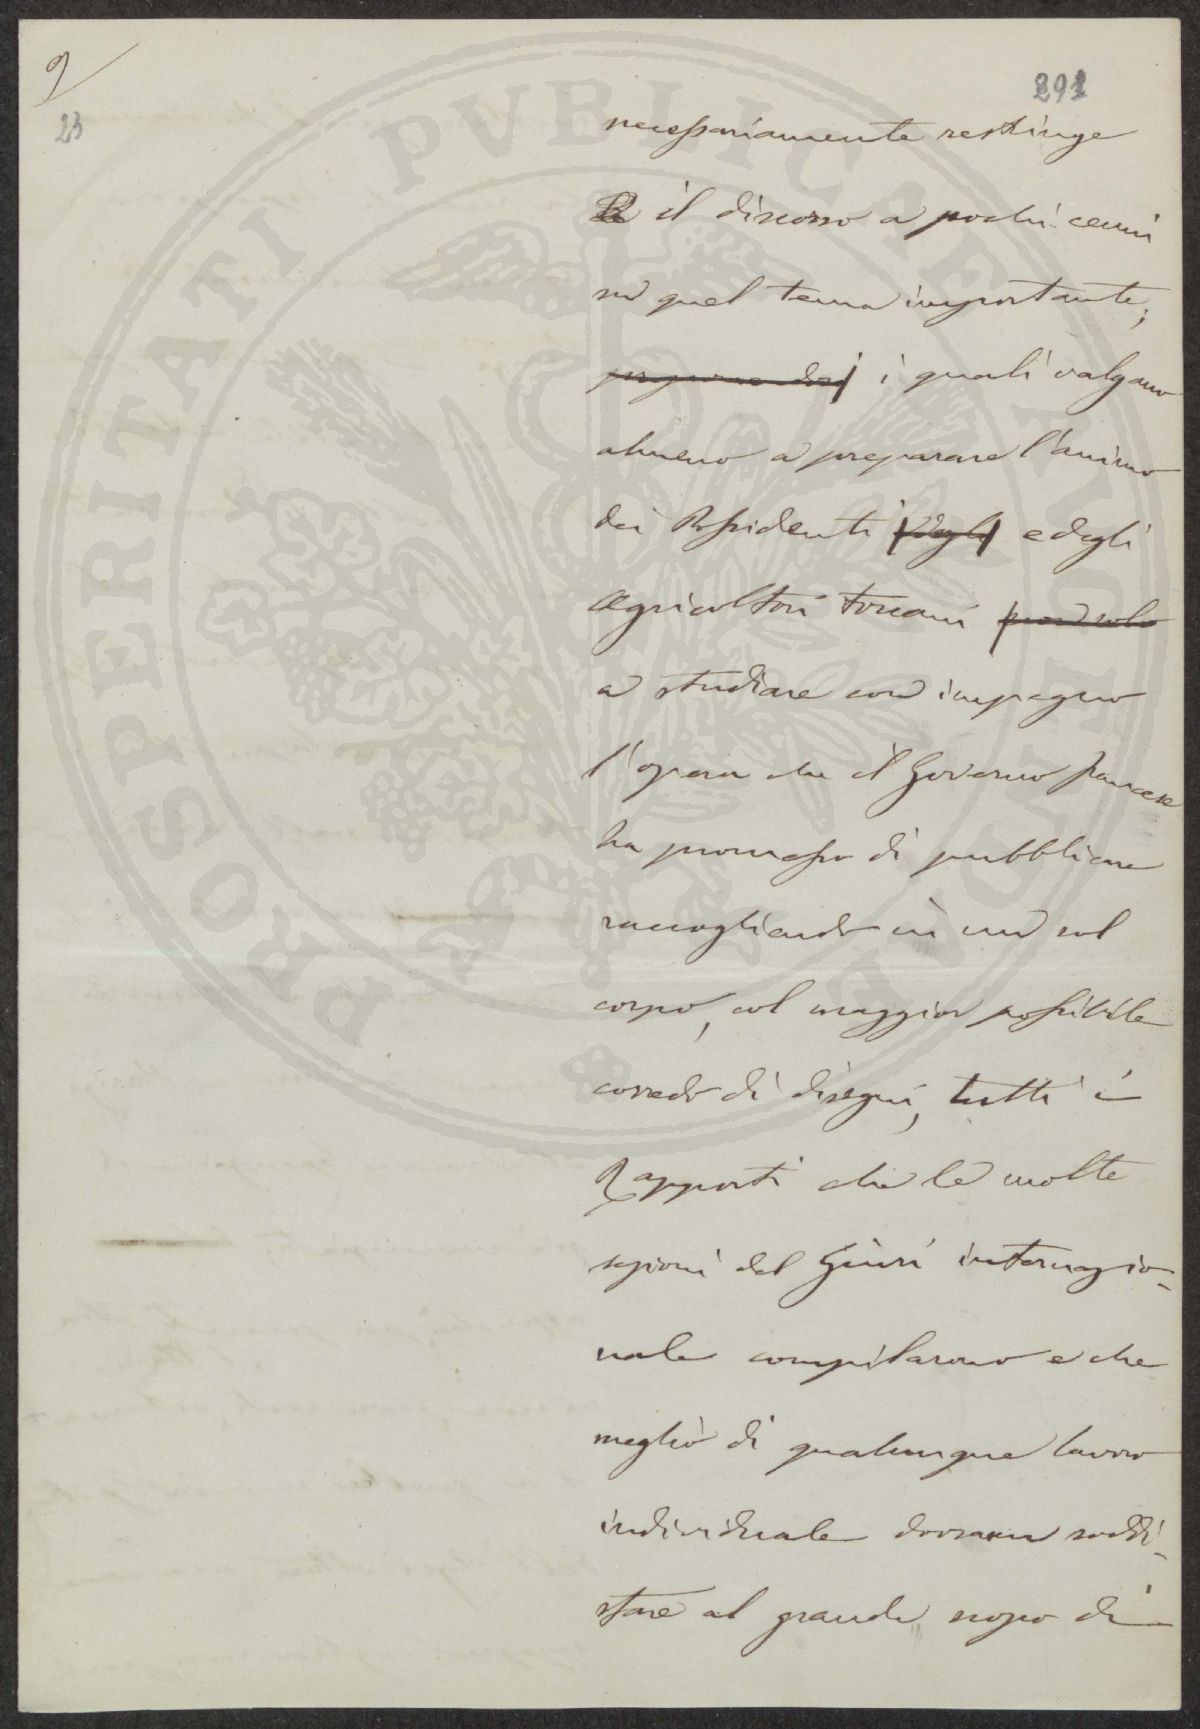 9
23
291
necessariamente restringe
il discorso a pochi cenni
su quel tema importante,
proponendosi i quali valgano
almeno a preparare l'animo
dei Possidenti degli e degli
Agricoltori toscani
a studiare con impegno
l'opera che il Governo francese
ha promesso di pubblicare
raccogliendo in un sol
corpo, col maggior possibile
corredo di disegni, tutti i
Rapporti che le molte
sezioni del Giurì internazio-
nale compilarono e che
meglio di qualunque lavoro
individuale dovranno soddi-
sfare al grande scopo di
PROSPERITATI PVBLICAE AVGENDAE